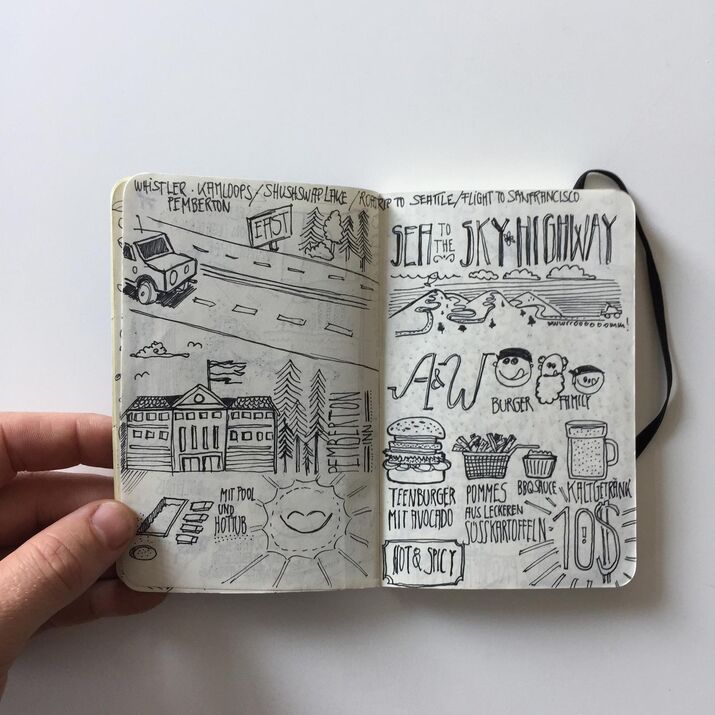 WHISTLER · KAMLOOPS / SHUSHSWAP LAKE / ROADTRIP TO SEATTLE / FLIGHT TO SANFRANCISCO
PEMBERTON
EAST
PEMBERTON
INN
MIT POOL
UND
HOTTUB
SEA TO THE SKY HIGHWAY
wwwrroooooomm!
A&W
BURGER FAMILY
TEENBURGER
MIT AVOCADO
POMMES
AUS LECKEREN
SÜSSKARTOFFELN
BBQ SAUCE
KALTGETRÄNK
10$
HOT & SPICY